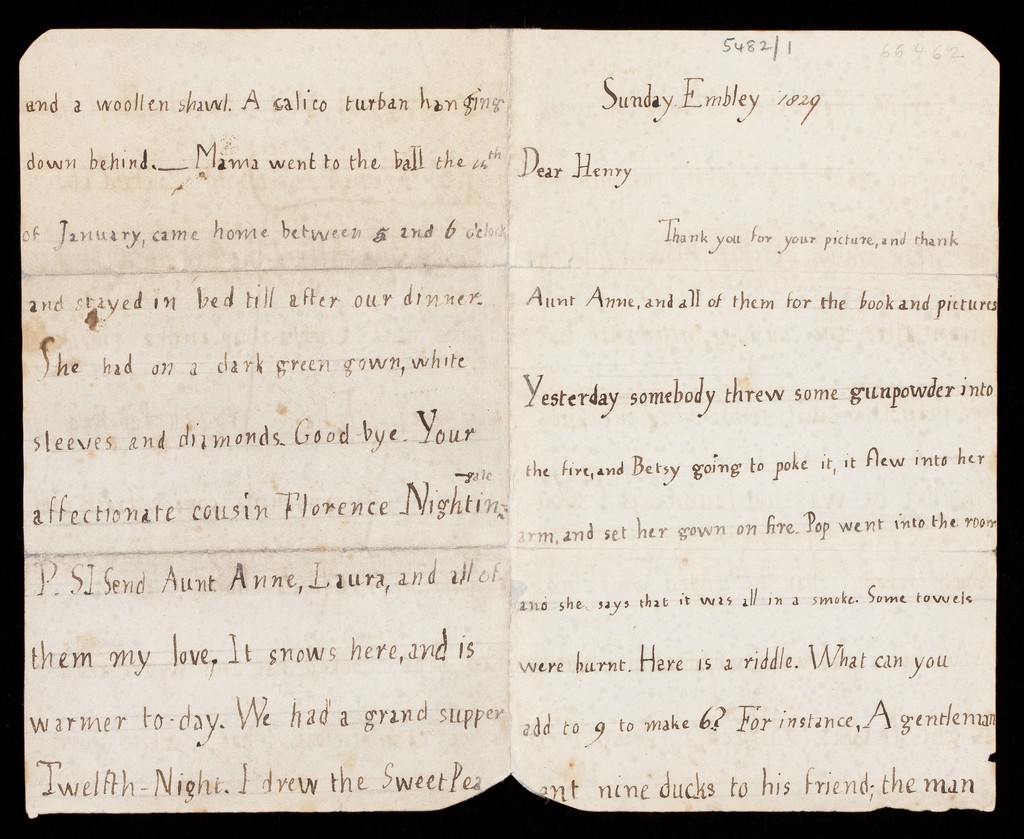 5482/1
66462
Sunday Embley 1829
Dear Henry
Thank you for your picture, and thank
Aunt Anne, and all of them for the book and pictures
Yesterday somebody threw some gunpowder into
the fire, and Betsy going to poke it, it flew into her
arm, and set her gown on fire. Pop went into the room
and she says that it was all in a smoke. Some towels
were burnt. Here is a riddle. What can you
add to 9 to make 6? For instance, A gentleman
ent nine ducks to his friend; the man
and a woollen shawl. A calico turban hanging
down behind.— Mama went to the ball the
of January, came home between 5 and 6 o'clock
and stayed in bed till after our dinner.
She had on a dark green gown, white
sleeves and diamonds. Good-bye. Your
-gale
affectionate cousin Florence Nightin-
P. S I Send Aunt Anne, Laura, and all of
them my love, It snows here, and is
warmer to-day. We had a grand supper
Twelfth-Night. I drew the Sweet Pea